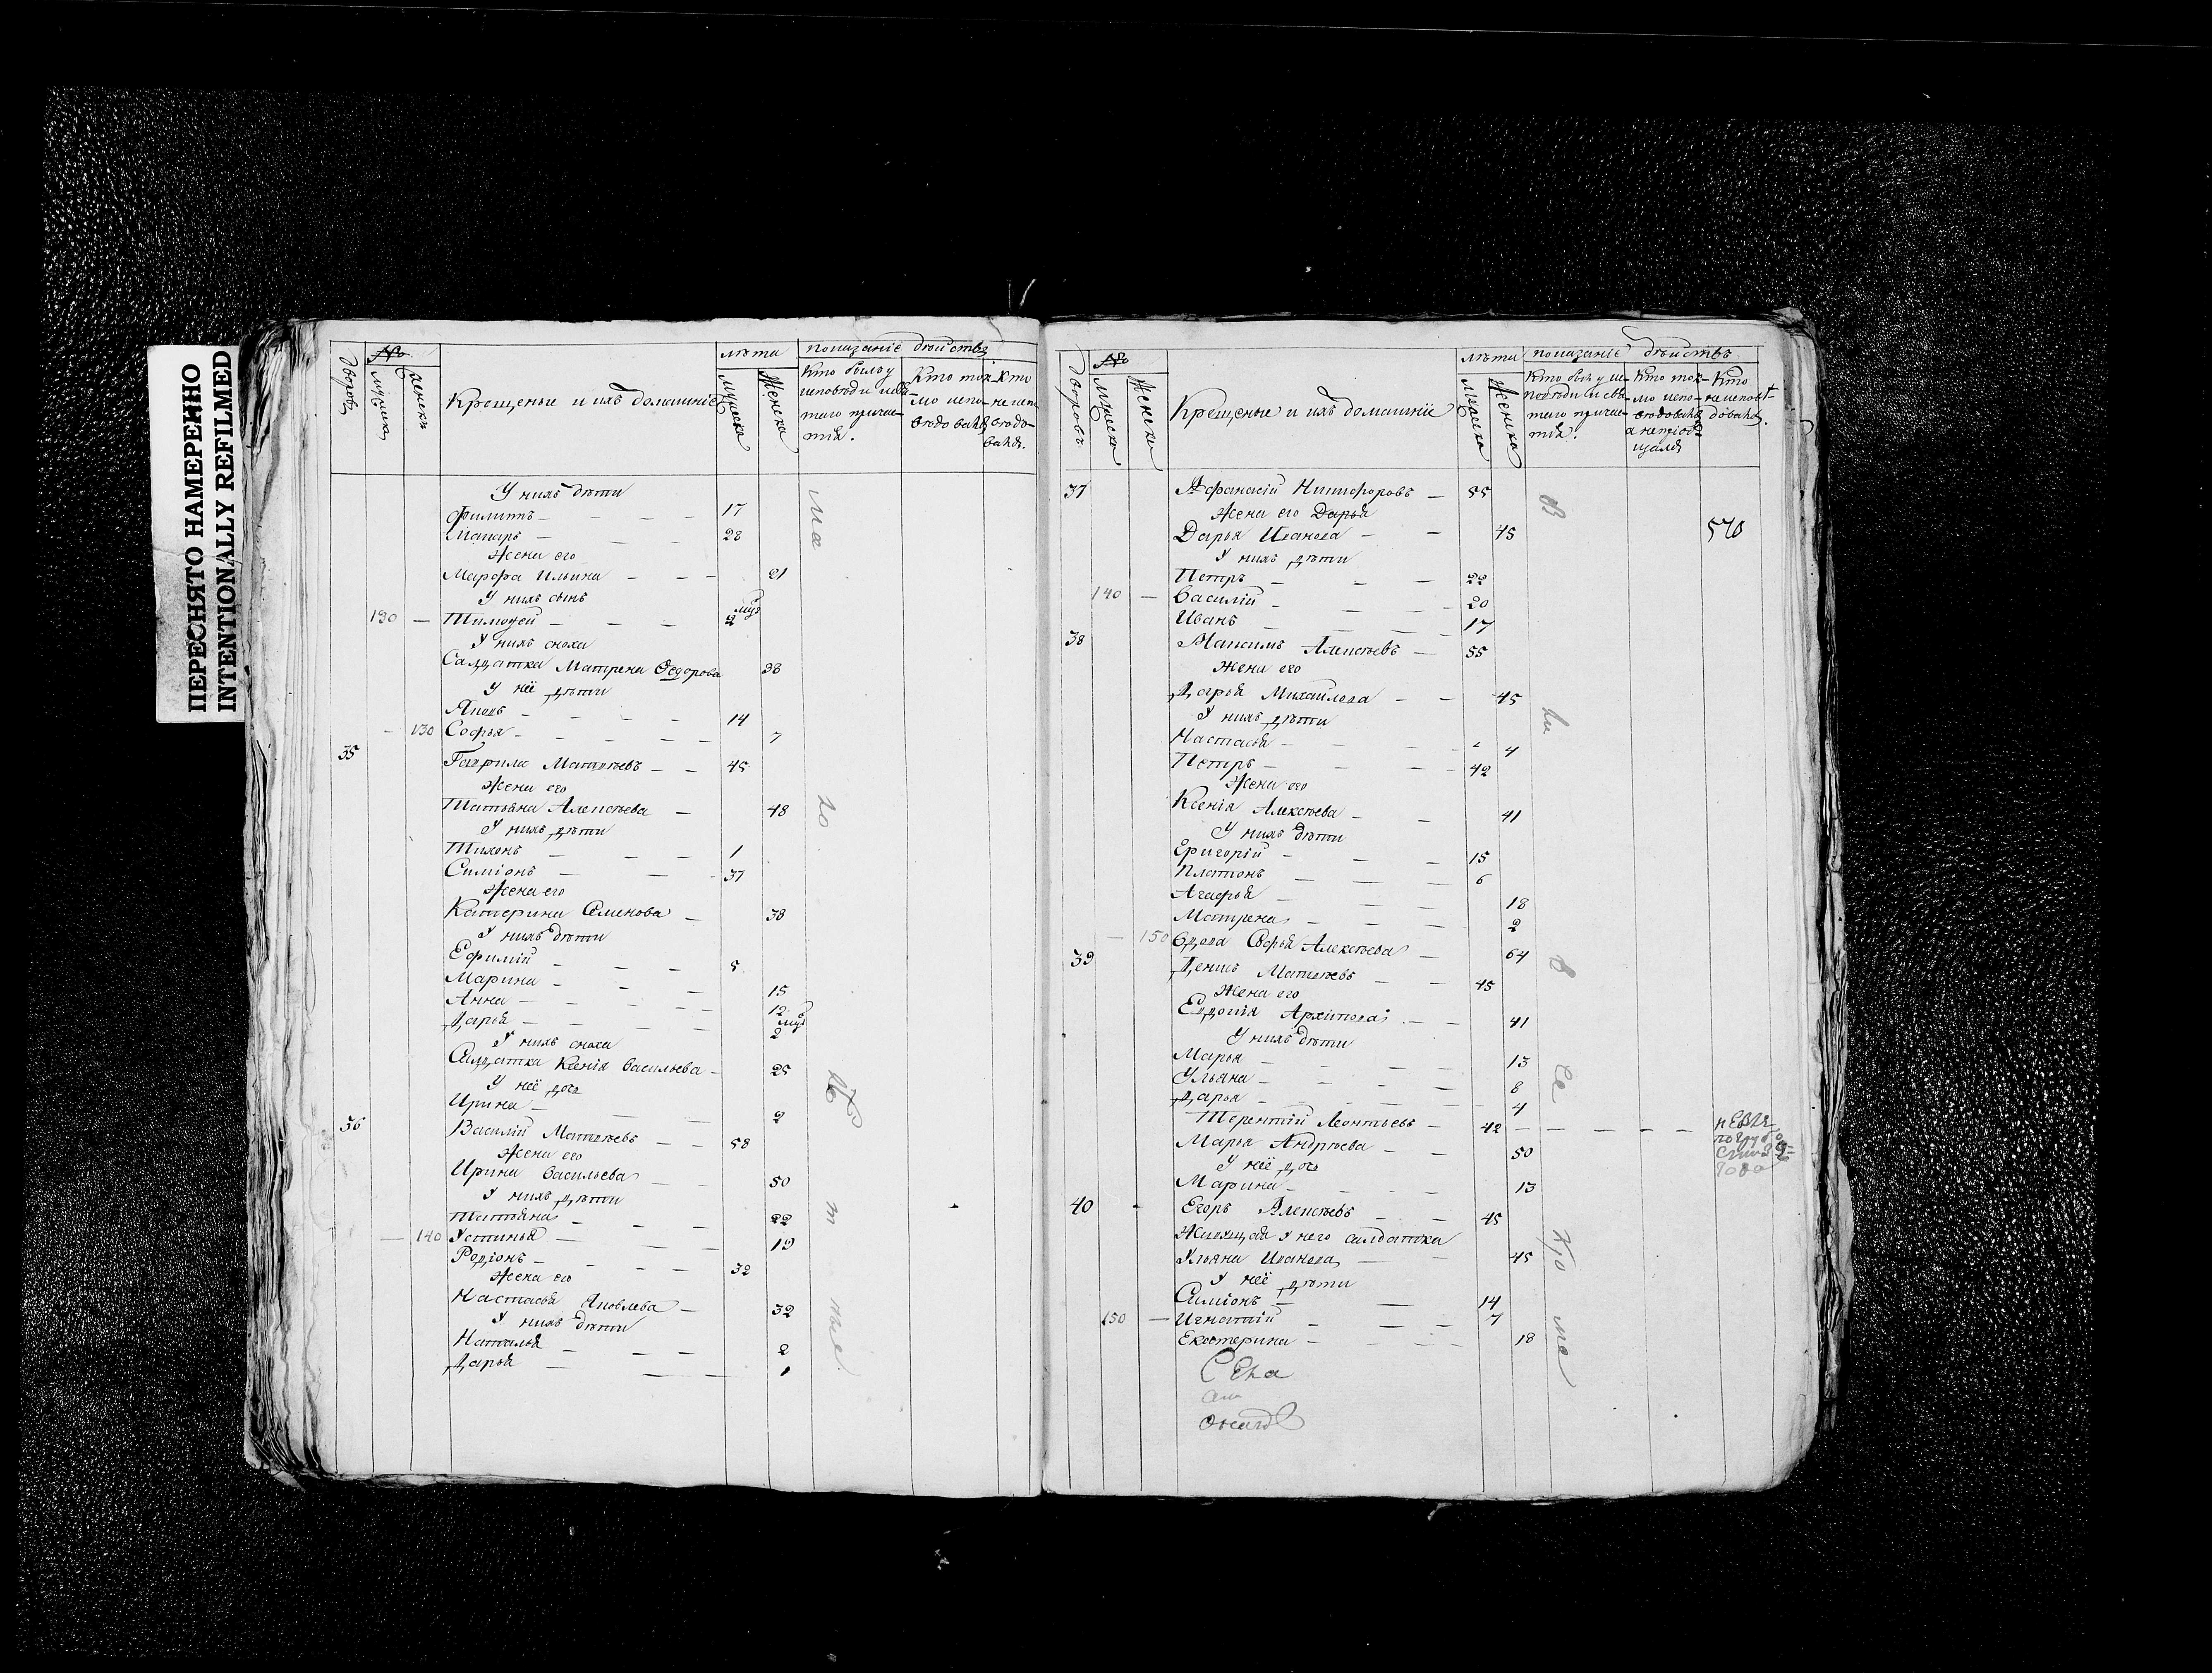 ПЕРЕСНЯТО НАМЕРЕННО
INTENTIONALLY REFILMED
дворовъ
№
мужеска
женска
Крещеные и ихъ домашніе
лѣта
мужеска
женска
показаніе дѣйства
Кто былъ у исповѣди и святаго причастія.
Кто токмо исповѣдовался
Кто не исповѣдовался.
У нихъ дѣти
Филиппъ 17
Макаръ 28
Жена его
Марфа Ильина 21
У нихъ сынъ
130 Тимоѳей 2
У нихъ сноха
Салдатка Матрена Ѳедорова 38
У неё дѣти
Яковъ 14
130 Софья 7
35 Гаврила Матвѣевъ 45
Жена его
Татьяна Алексѣева 48
У нихъ дѣти
Тихонъ 1
Симіонъ 37
Жена его
Катерина Семенова 38
У нихъ дѣти
Ефимій 5
Марина 15
Анна 12
Дарья 2
У нихъ сноха
Салдатка Ксенія Васильева 25
У неё дочь
Ирина 2
36 Василій Матвѣевъ 58
Жена его
Ирина Васильева 50
У нихъ дѣти
Татьяна 22
140 Устинья 19
Родіонъ 32
Жена его
Настасья Яковлева 32
У нихъ дѣти
Наталья 2
Дарья 1
дворовъ
№
мужеска
женска
Крещеные и ихъ домашніе
лѣта
мужеска
женска
показаніе дѣйствъ
Кто былъ у исповѣди и святаго причастія.
Кто токмо исповѣдовался а не пріобщался
Кто не исповѣдовался.
37 Афанасій Никифоровъ 55
Жена его Дарья
Дарья Иванова 45 570
У нихъ дѣти
Петръ 22
140 Василій 20
Иванъ 17
38 Максимъ Алексѣевъ 55
Жена его
Дарья Михайлова 45
У нихъ дѣти
Настасья 4
Петръ 42
Жена его
Ксенія Алексѣева 41
У нихъ дѣти
Григорій 15
Платонъ 6
Агафья 18
Матрена 2
150 Вдова Софья Алексѣева 64
39 Денисъ Матвѣевъ 45
Жена его
Евдокія Архипова 41
У нихъ дѣти
Марья 13
Ульяна 8
Дарья 4
Терентій Леонтьевъ 42
Марья Андрѣева 50
У неё дочь
Марина 13
40 Егоръ Алексѣевъ 45
Живущая у него салдатка
Ульяна Иванова 45
У неё дѣти
Симіонъ 14
150 Игнатій 7
Екатерина 18